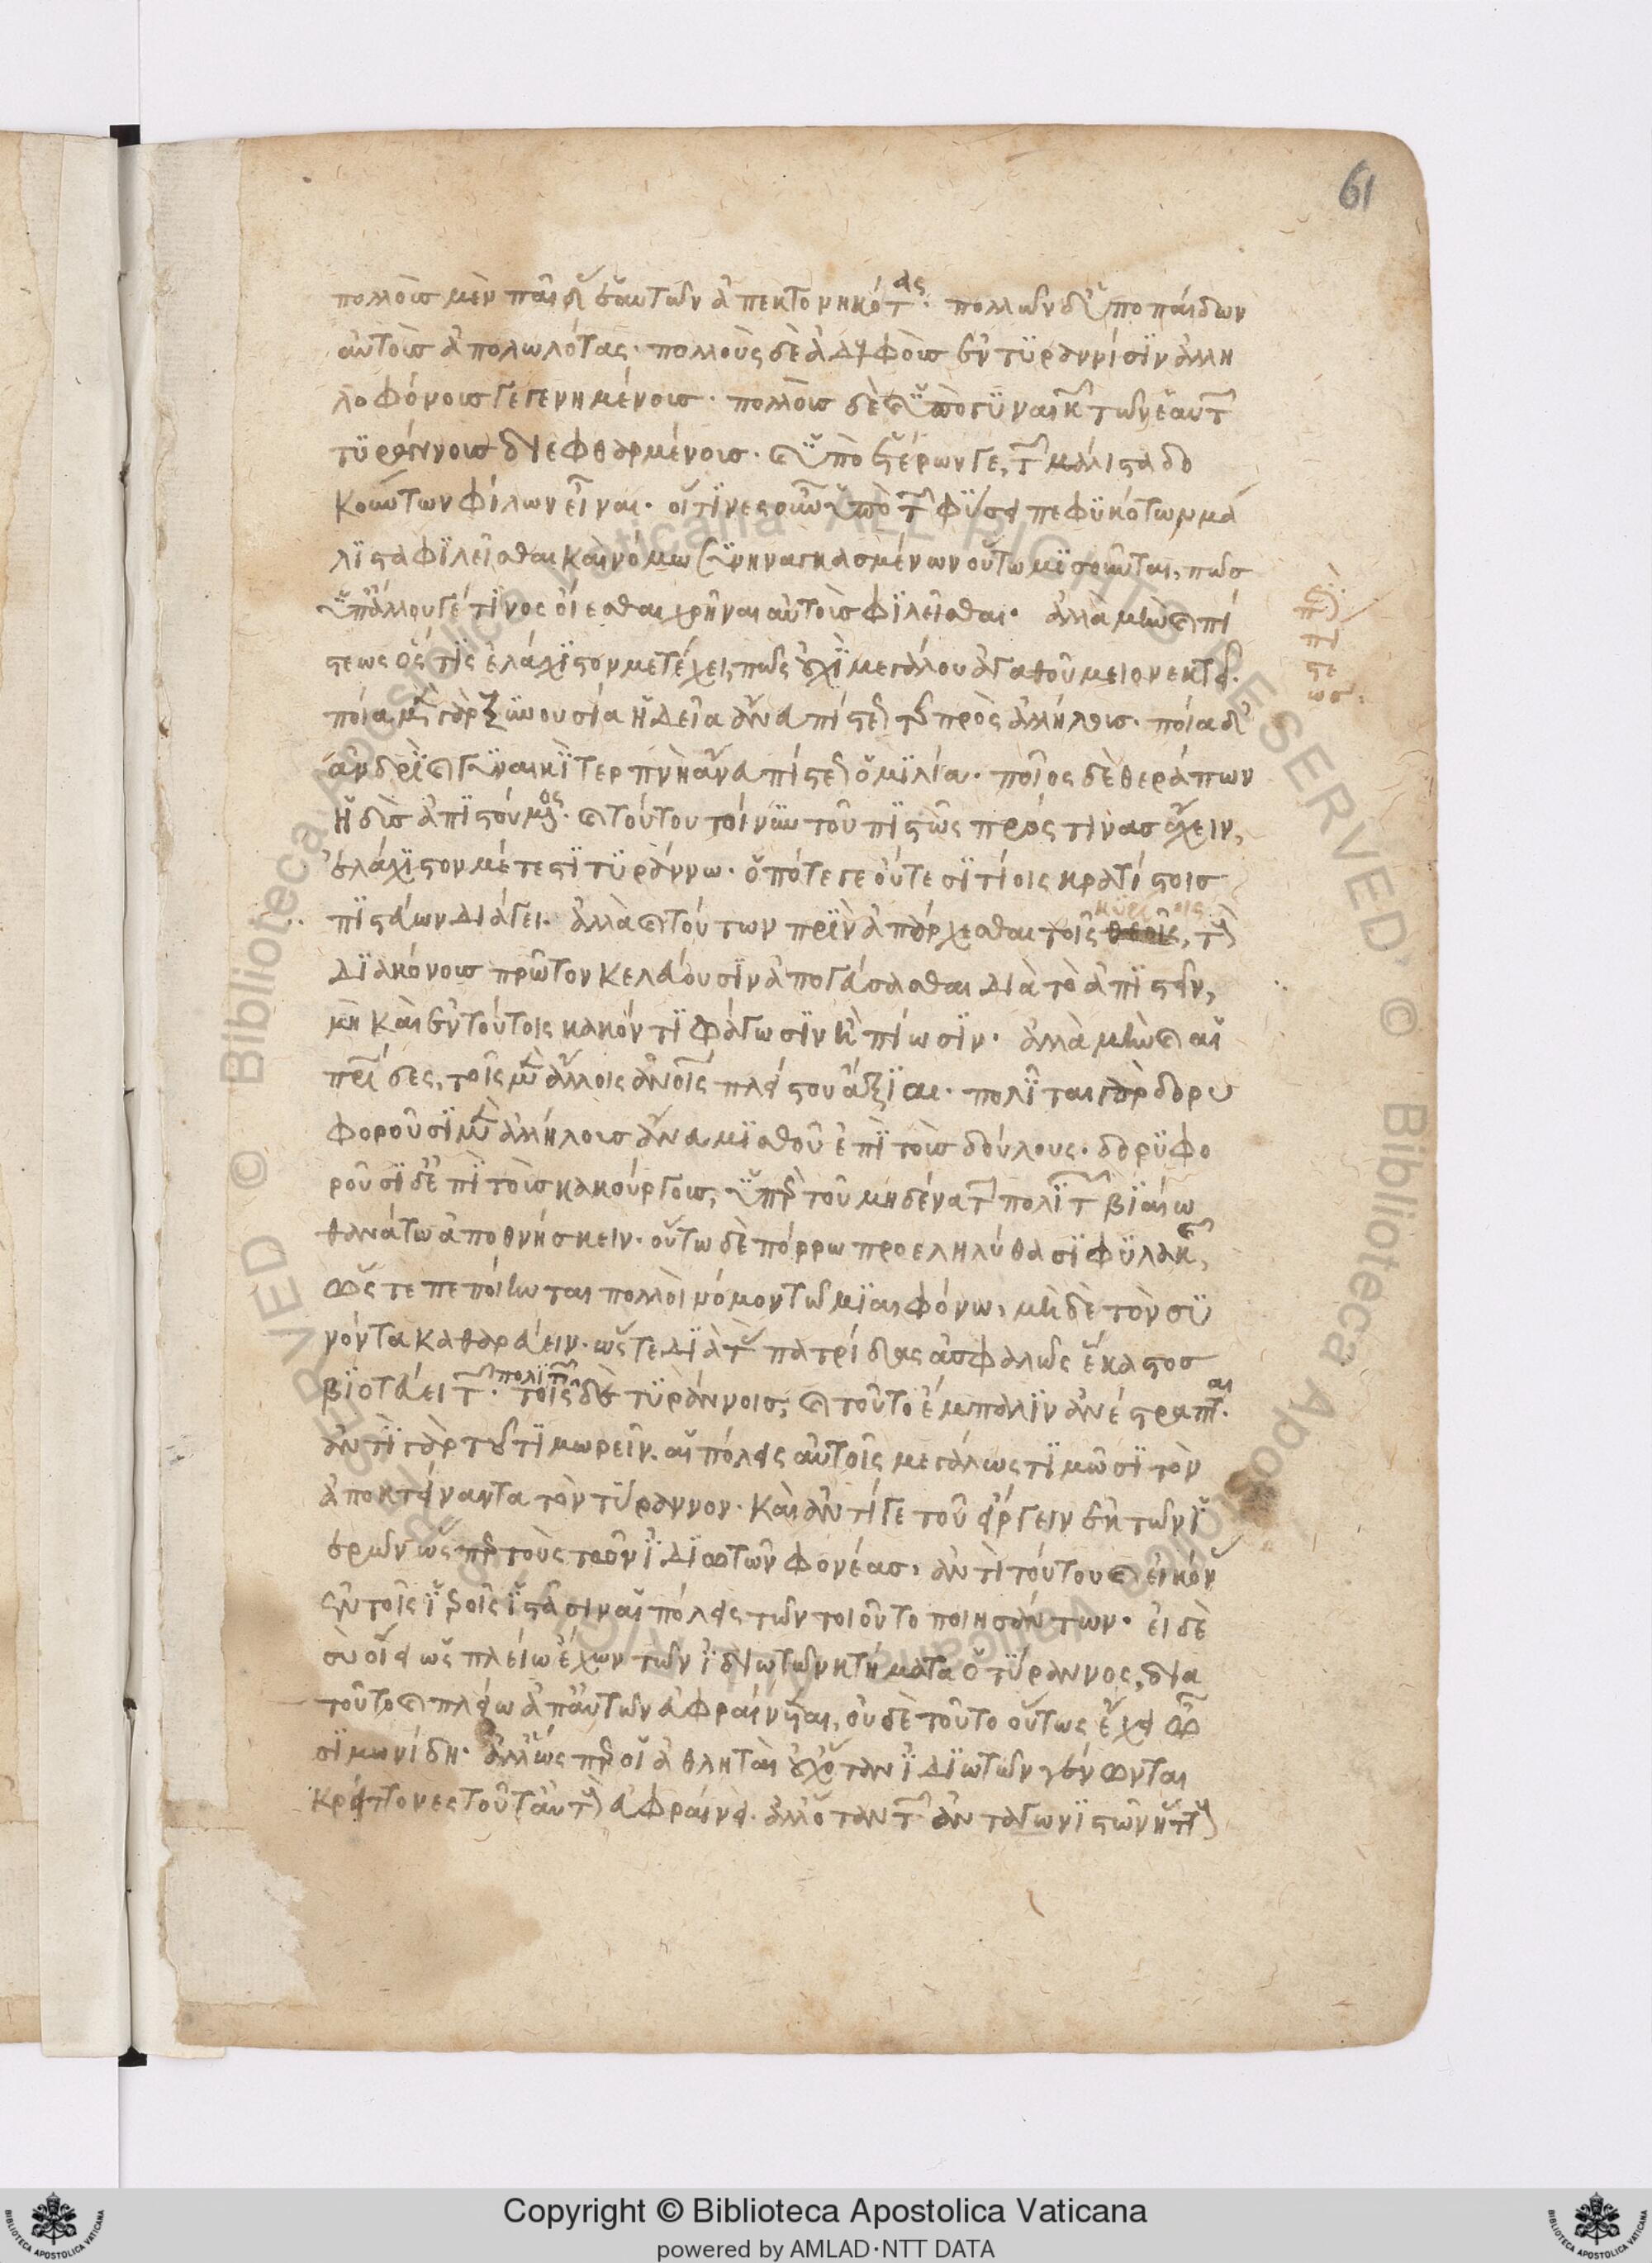 61
πολλοὺς μὲν παῖδ ἑαυτῶν ἀπεκτονηκότας· πολλῶν δ' ὑπὸ παίδων
αὐτοὺς ἀπολωλότας· πολλοὺς δὲ ἀδελφοὺς ἐν τϋραννίσϊν ἀλλη
λοφόνους γεγενημένους· πολλοὺς δὲ καὶ ὑπὸ γϋναικ τῶν ἑαυτ
τϋράννους διεφθαρμένους· καὶ ὑπὸ ἑταίρων γε, τ μάλιστα δο
κούντων φίλων εἶναι· οἵτϊνες οὖν ὑπὸ τ φϋσει πεφϋκότων μά
λϊστα φϊλεῖσθαι καὶ νόμω σϋνηναγκασμένων οὕτω μϊσοῦνται, πῶς
ὑπ' ἄλλου γέ τϊνος οἴεσθαι χρῆναι αὐτοὺς φϊλεῖσθαι· ἀλλὰ μὴν καὶ πί
στεως ὅστϊς ἐλάχϊστον μετέχει, πῶς οὐχϊ μεγάλου ἀγαθοῦ μειονεκτεῖ·
ποία μὲν γὰρ ξϋνουσία ἡδεῖα ἄνευ πίστεως τῆς πρὸς ἀλλήλους· ποία δ'
ἀνδρϊ καὶ γϋναικϊ τερπνὴ ἄνευ πίστεως ὁμϊλία· ποῖος δὲ θεράπων
ἡδὺς ἀπϊστούμενος· καὶ τούτου τοίνϋν τοῦ πϊστῶς πρός τινας ἔχειν,
ἐλάχϊστον μέτεστϊ τϋράννω· ὁπότε γε οὔτε σϊτίοις κρατίστοις
πϊστεύων διάγει· ἀλλὰ καὶ τούτων πρϊν ἀπάρχεσθαι τοῖς θεοῖς, τοὺς
δϊακόνους πρῶτον κελεύουσϊν ἀπογεύσασθαι διὰ τὸ ἀπϊστεῖν,
μὴ καὶ ἐν τούτοις κακόν τϊ φάγωσϊν ἢ πίωσϊν· ἀλλὰ μὴν καὶ αἱ
πατρίδες, τοῖς μὲν ἄλλοις ἀνοις πλείστου ἄξϊαι· πολῖται γὰρ δορυ
φοροῦσϊ μὲν ἀλλήλους ἄνευ μϊσθοῦ ἐπϊ τοὺς δούλους· δορϋφο
ροῦσϊ δ' ἐπϊ τοὺς κακούργους, ὑπὲρ τοῦ μηδένα τ πολϊτ βϊαίω
θανάτω ἀποθνήσκειν· οὕτω δὲ πόρρω προεληλύθασϊ φϋλακῆς,
ὥστε πεποίηνται πολλοὶ νόμον τῶ μϊαιφόνω, μηδὲ τὸν σϋ
νόντα καθαρεύειν· ὥστε δϊὰ τ πατρίδας ἀσφαλῶς ἕκαστος
βϊοτεύει τ πολϊτ· τοῖς δὲ τϋράννοις, καὶ τοῦτο ἔμπαλϊν ἀνέστραπται·
ἀντϊ γὰρ τοῦ τϊμωρεῖν αἱ πόλεις αὐτοῖς μεγάλως τϊμῶσϊ τὸν
ἀποκτείναντα τὸν τϋραννον· καὶ ἀντί γε τοῦ εἴργειν ἐκ τῶν ϊ
ερῶν ὥσπερ τοὺς τῶν ϊδϊωτῶν φονέας, ἀντὶ τούτου καὶ εἰκόν
ἐν τοῖς ϊεροῖς ϊστᾶσιν αἱ πόλεις τῶν τοιοῦτο ποιησάντων· εἰ δὲ
σὺ οἴει ὡς πλείω ἔχων τῶν ϊδιωτῶν κτήματα ὁ τϋραννος, δια
τοῦτο καὶ πλείω ἀπ' αὐτῶν εὐφραίνεται, οὐδὲ τοῦτο οὕτως ἔχει ὦ
σϊμωνίδη· ἀλλ' ὥσπερ οἱ ἀθληταὶ οὐχ ὅταν ϊδϊωτῶν γένωνται
κρείττονες τοῦτ' αὐτοὺς εὐφραίνει· ἀλλ' ὅταν τ ἀνταγωνϊστῶν ἥττους